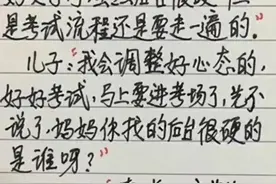 是考试流程还是要走一遍的。”
儿子：“我会调整好心态的，
好好考试，马上要进考场了，先不
说了，妈妈你找的后台很硬的
是谁呀？”